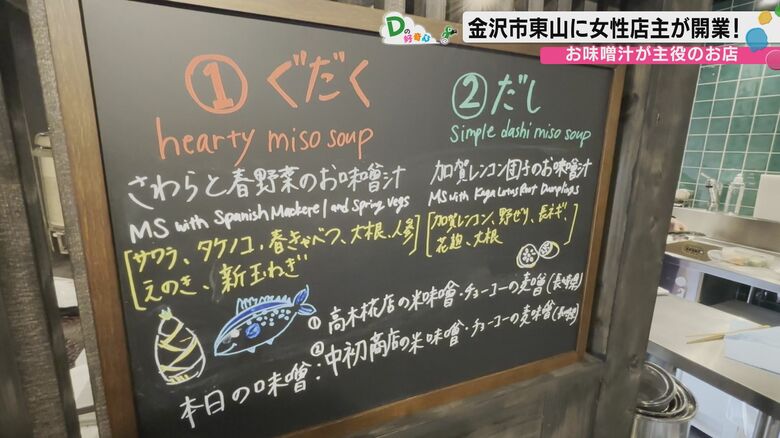 Dの好奇心
金沢市東山に女性店主が開業!
お味噌汁が主役のお店
① ぐだく
hearty miso soup
さわらと春野菜のお味噌汁
MS with Spanish Mackerel and Spring Vegs
[サワラ、タケノコ、春きゃべつ、大根、人参
えのき、新玉ねぎ]
② だし
simple dashi miso soup
加賀レンコン団子のお味噌汁
MS with Kaga Lotus Root Dumplings
[加賀レンコン、野ぜり、長ネギ、
花麩、大根]
① 高木糀店の米味噌・チョーコーの麦噌(長崎県)
本日の味噌:② 中初商店の米味噌・チョーコーの麦味噌(長崎県)